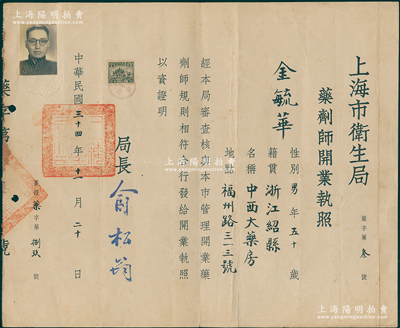 上海陽明拍賣
WWW.YMPM.COM
上海市衛生局
藥劑師開業執照
藥字第叁號
金毓華
性別男年五十歲
籍貫浙江紹縣
名稱中西大藥房
地點福州路三一三號
經本局審查核與本市管理開業藥
劑師規則相符合行發給開業執照
以資證明
局長俞松筠
中華民國三十四年十二月二十日
藥字第捌玖號
上海陽明拍賣